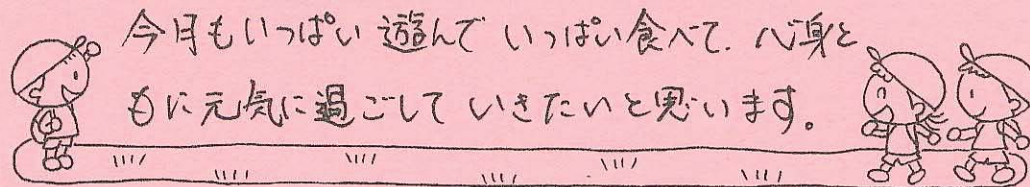 今月もいっぱい遊んでいっぱい食べて、心身と
もに元気に過ごしていきたいと思います。